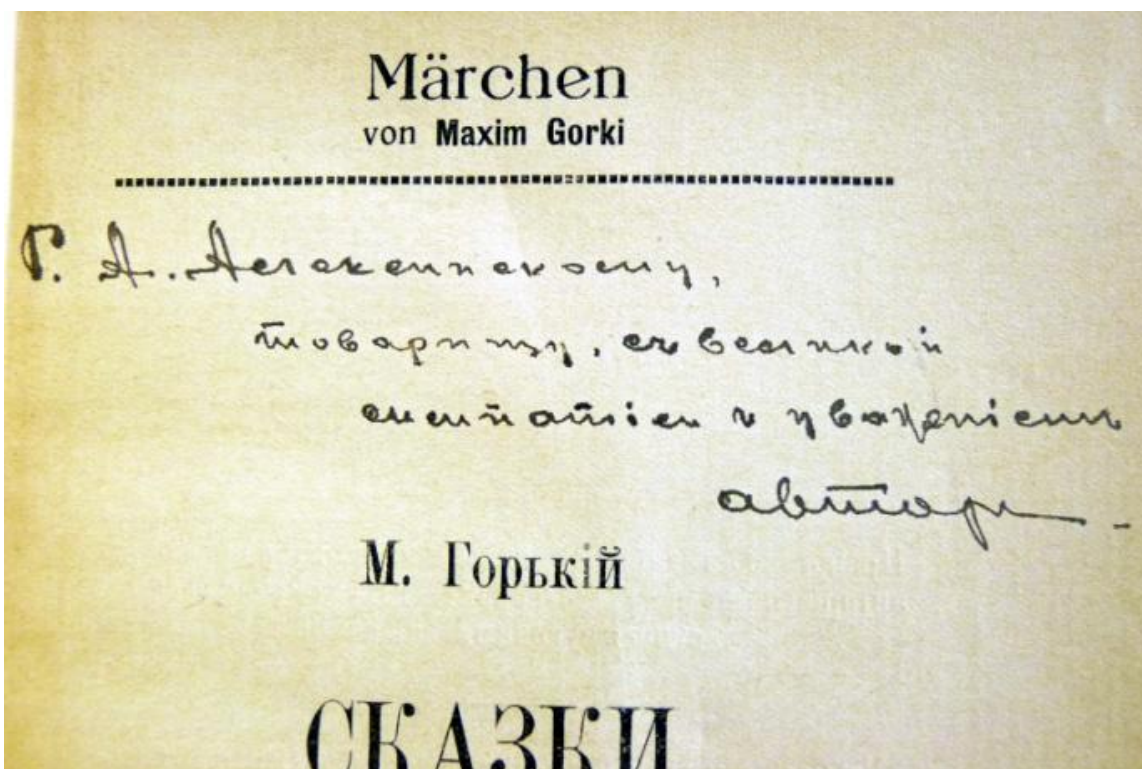 Märchen
von Maxim Gorki
Г. А. Алексинскому,
товарищу, съ великой
симпатіей и уваженіемъ
авторъ
М. Горькій
СКАЗКИ